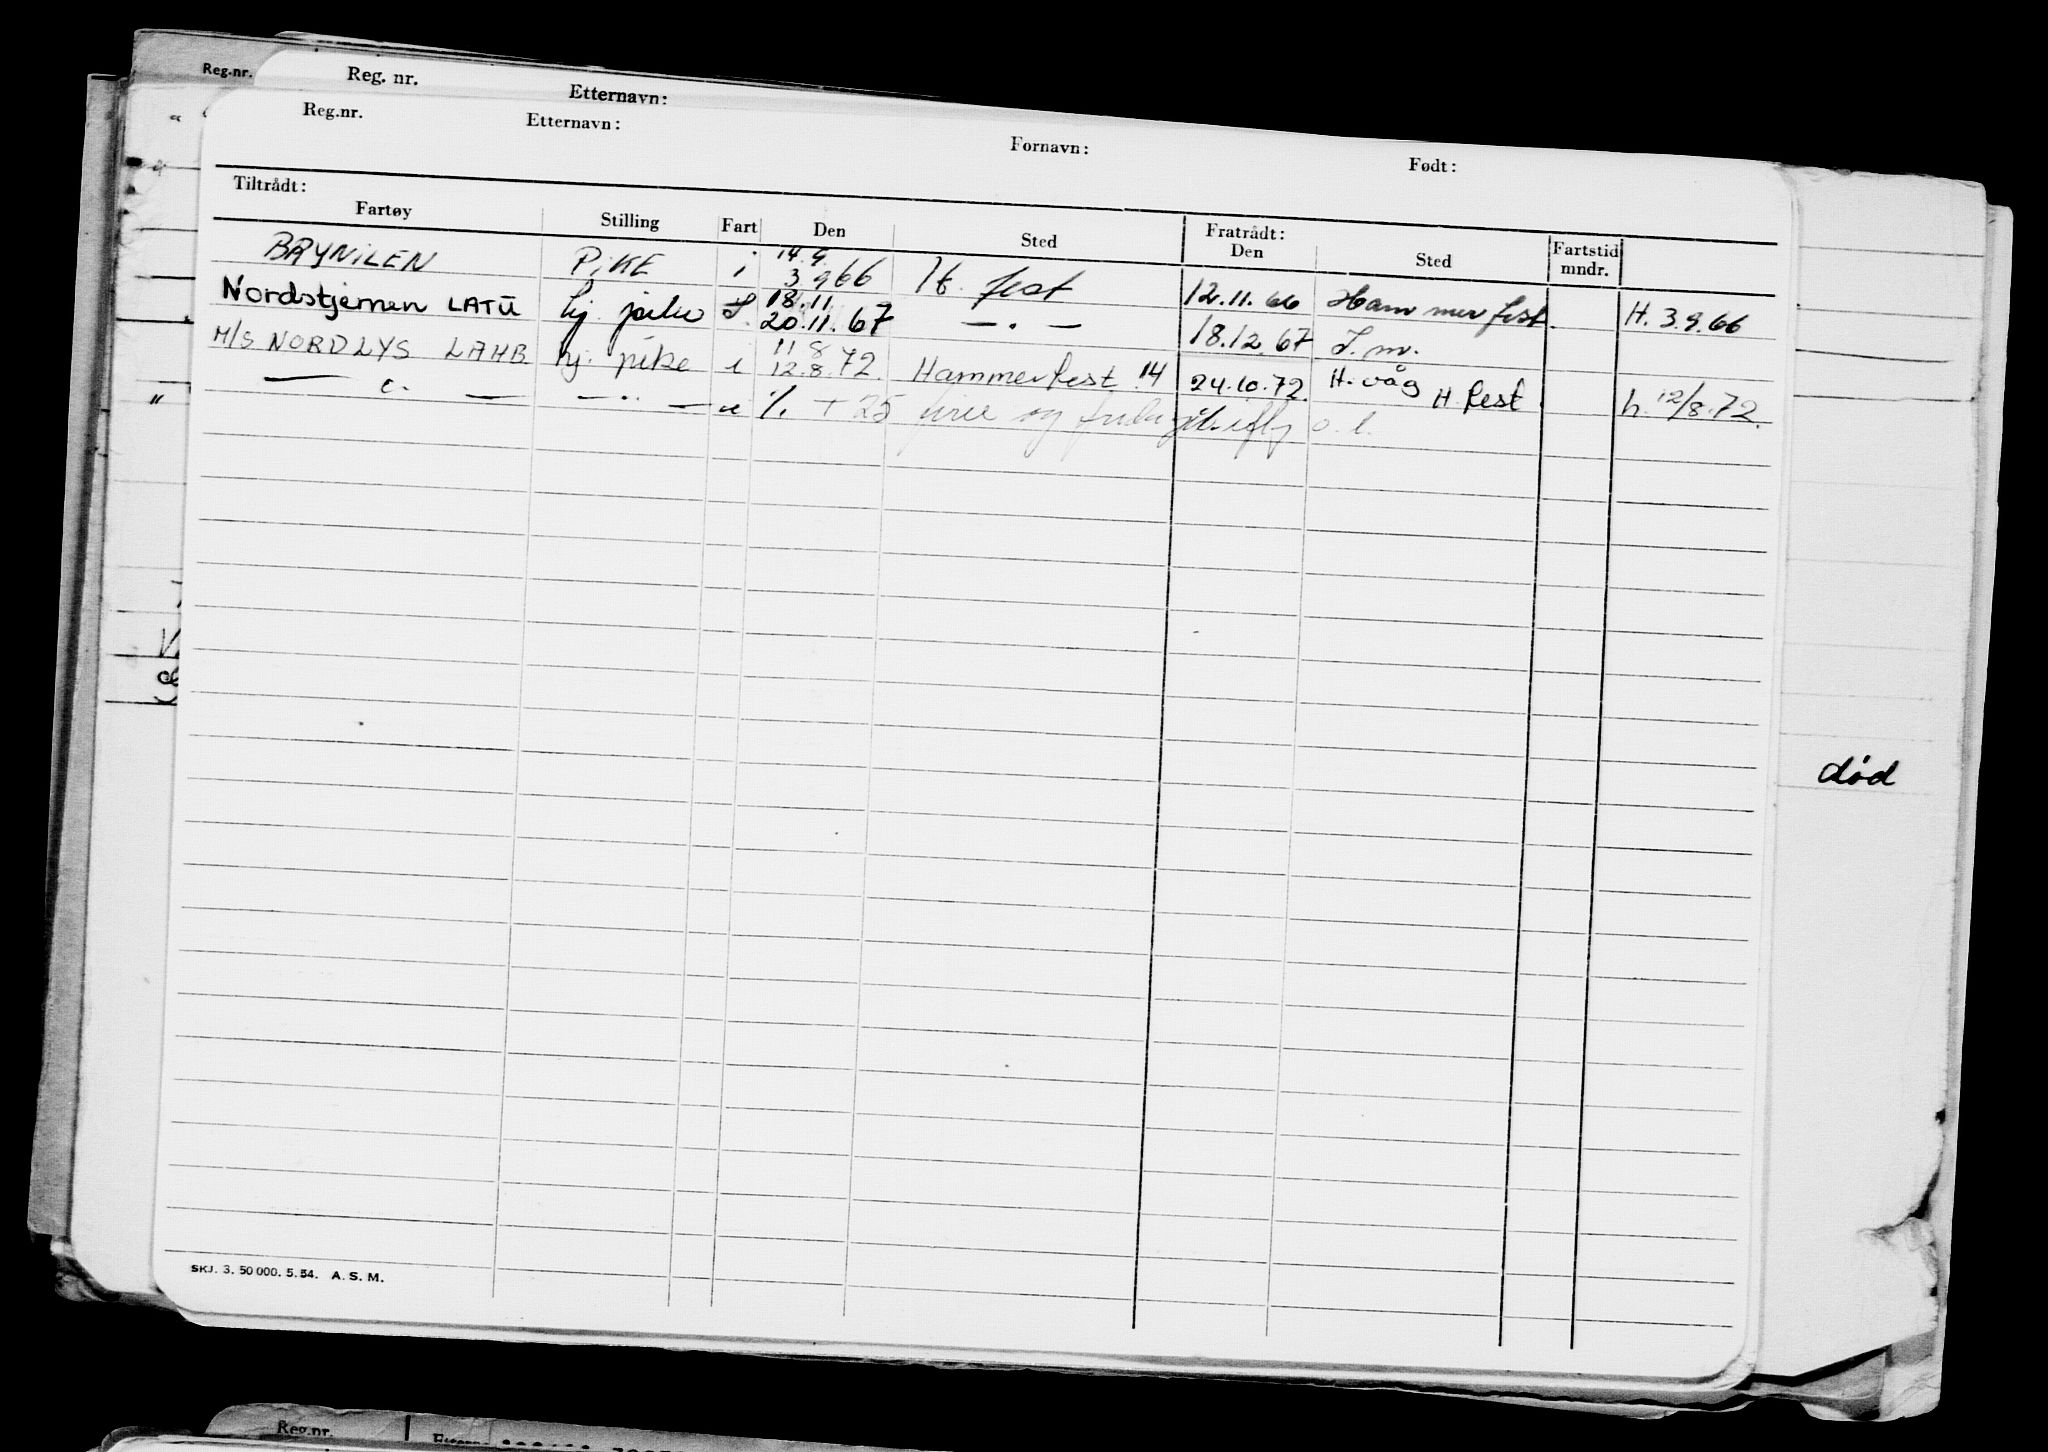 Reg.nr.
Reg. nr.
Etternavn:
Reg.nr.
Etternavn:
Fornavn:
Født:
Tiltrådt:
Fratrådt:
Fartøy Stilling Fart Den Sted Den Sted Fartstid mndr.
BRYNILEN PiKE i 14.9. 3 9 66 H. fest 12.11.66 Hammerfest. H. 3.9.66
Nordstjernen LATU hj. pike I. 18.11. 20.11.67 — . — 18.12.67 T.m.
M/S NORDLYS LAHB hj. pike i 11 8 12.8.72. Hammerfest 14 24.10.72. H.våg H.fest. h. 12/8.72.
— " — — " — u %. + 25 og o. l.
"
død
SKJ. 3. 50 000. 5. 54. A. S. M.
Reg.nr.